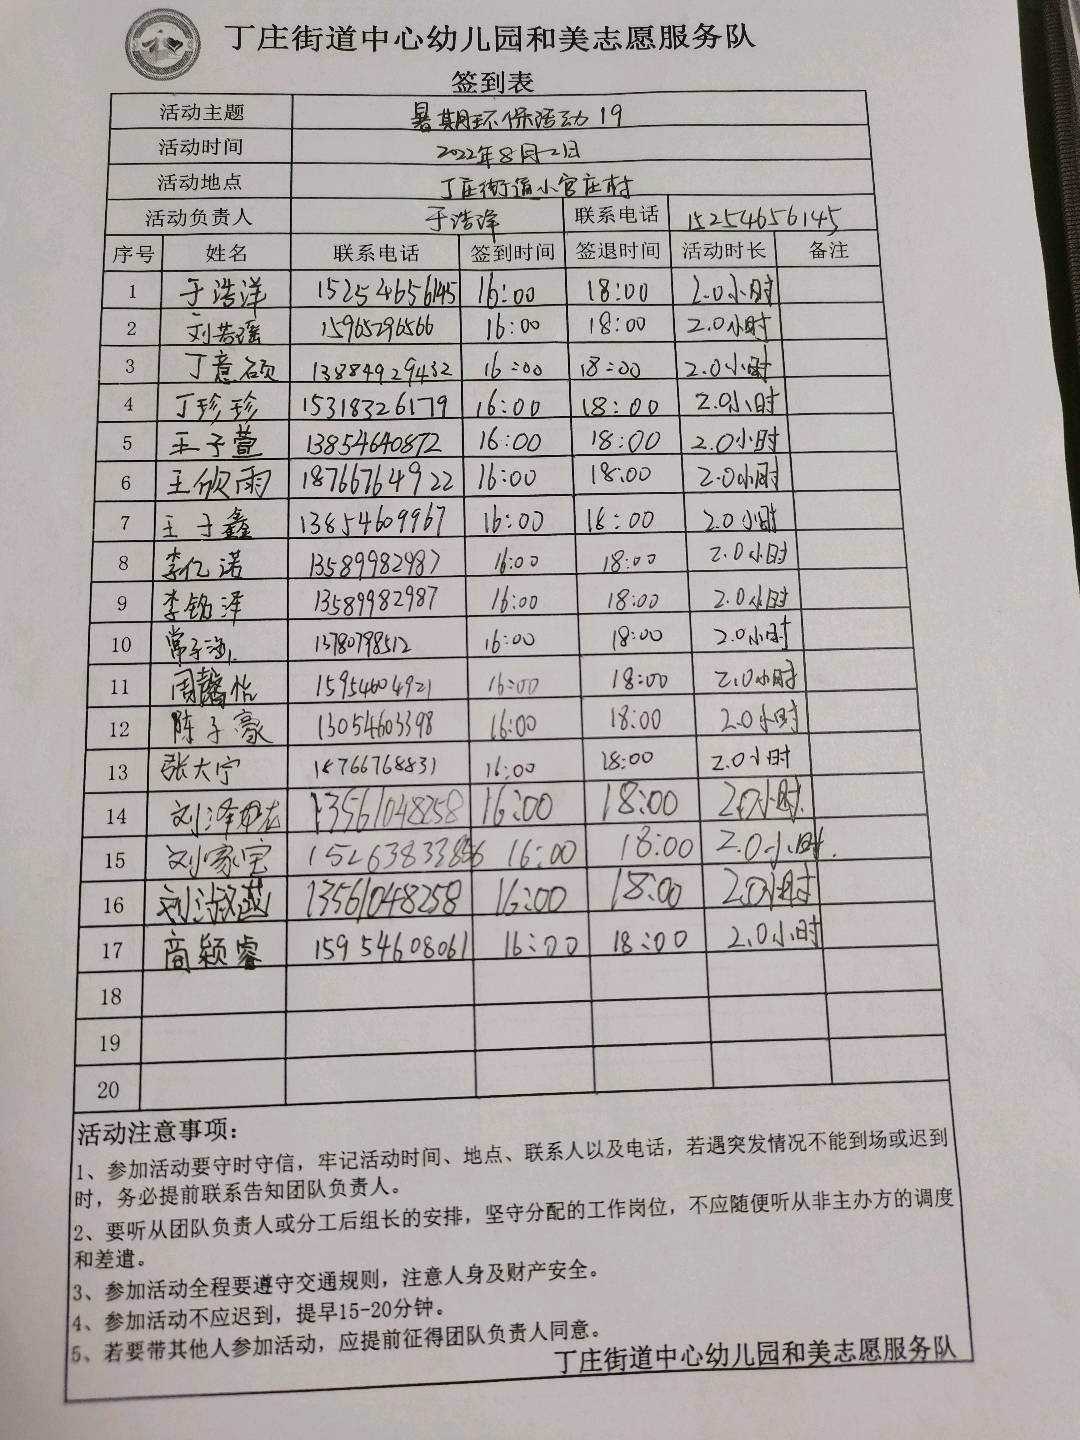 丁庄街道中心幼儿园和美志愿服务队
签到表
活动主题 暑期环保活动19
活动时间 2022年8月2日
活动地点 丁庄街道小官庄村
活动负责人 于浩洋 联系电话 15254656145
序号 姓名 联系电话 签到时间 签退时间 活动时长 备注
1 于浩洋 15254656145 16:00 18:00 2.0小时
2 刘若瑶 15965296566 16:00 18:00 2.0小时
3 丁意硕 13884929432 16:00 18:00 2.0小时
4 丁珍珍 15318326179 16:00 18:00 2.0小时
5 王子萱 13854640872 16:00 18:00 2.0小时
6 王欣雨 18766764922 16:00 18:00 2.0小时
7 王子鑫 13854609967 16:00 18:00 2.0小时
8 李亿诺 13589982987 16:00 18:00 2.0小时
9 李铭泽 13589982987 16:00 18:00 2.0小时
10 常子涵 13780798512 16:00 18:00 2.0小时
11 周馨怡 15954604921 16:00 18:00 2.0小时
12 陈子豪 13054603398 16:00 18:00 2.0小时
13 张大宁 18766768831 16:00 18:00 2.0小时
14 刘泽 13561048258 16:00 18:00 2.0小时
15 刘家宝 15263833856 16:00 18:00 2.0小时
16 刘 13561048258 16:00 18:00 2.0小时
17 商颖睿 15954608061 16:00 18:00 2.0小时
18
19
20
活动注意事项:
1、参加活动要守时守信，牢记活动时间、地点、联系人以及电话，若遇突发情况不能到场或迟到
时，务必提前联系告知团队负责人。
2、要听从团队负责人或分工后组长的安排，坚守分配的工作岗位，不应随便听从非主办方的调度
和差遣。
3、参加活动全程要遵守交通规则，注意人身及财产安全。
4、参加活动不应迟到，提早15-20分钟。
5、若要带其他人参加活动，应提前征得团队负责人同意。
丁庄街道中心幼儿园和美志愿服务队